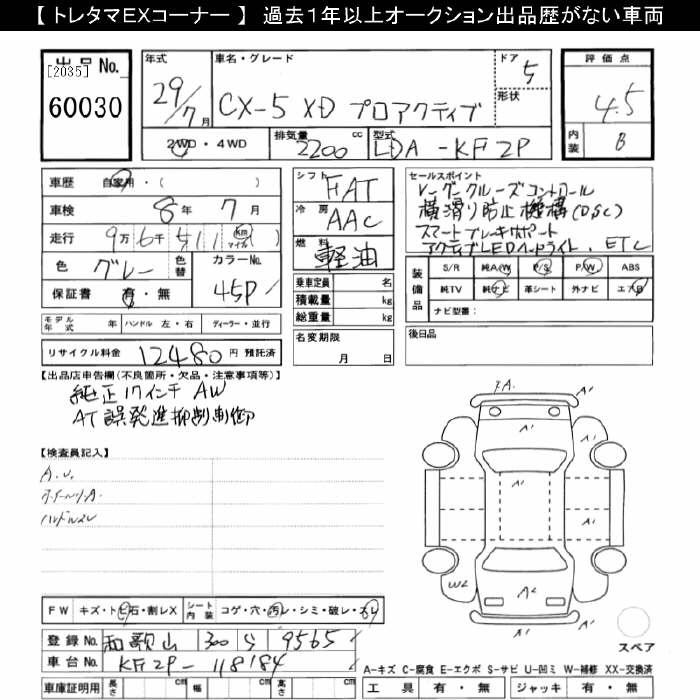 【 トレタマEXコーナー 】 過去1年以上オークション出品歴がない車両
[2035] 出品No.
60030
年式 29/7月
車名・グレード CX-5 XD プロアクティブ
ドア 5
形状
評価点 4.5
内装 B
2WD・4WD
排気量 2200 cc
型式 LDA-KF2P
車歴 自家用・( )
車検 8年 7月
走行 9万6千511 km マイル( )
色 グレー
色替
カラーNo. 45P
保証書 有・無
モデル年式 年 ハンドル 左・右 ディーラー・並行
リサイクル料金 12480 円 預託済
シフト FAT
冷房 AAC
燃料 軽油
乗車定員 名
積載量 kg
総重量 kg
名変期限
月 日
セールスポイント
レーダークルーズコントロール
横滑り防止機構(DSC)
スマートブレーキサポート
アクティブLEDヘッドライト、ETC
装備品
S/R 純A/W P/S P/W ABS
純TV 純ナビ 革シート 外ナビ エアB
ナビ型番:
後日品
【出品店申告欄(不良箇所・欠品・注意事項等)】
純正17インチAW
AT誤発進抑制制御
【検査員記入】
A.U.
FW キズ・トビ石・割レX
シート内装 コゲ・穴・汚レ・シミ・破レ・スレ
登録No. 和歌山 300 9565
車台No. KF2P-118184
車庫証明用 長さ cm 幅 cm 高さ cm
A1
A1
A1
A1
A1
W2
A2
スペア
A-キズ C-腐食 E-エクボ S-サビ U-凹ミ W-補修 XX-交換済
工具 有・無 ジャッキ 有・無